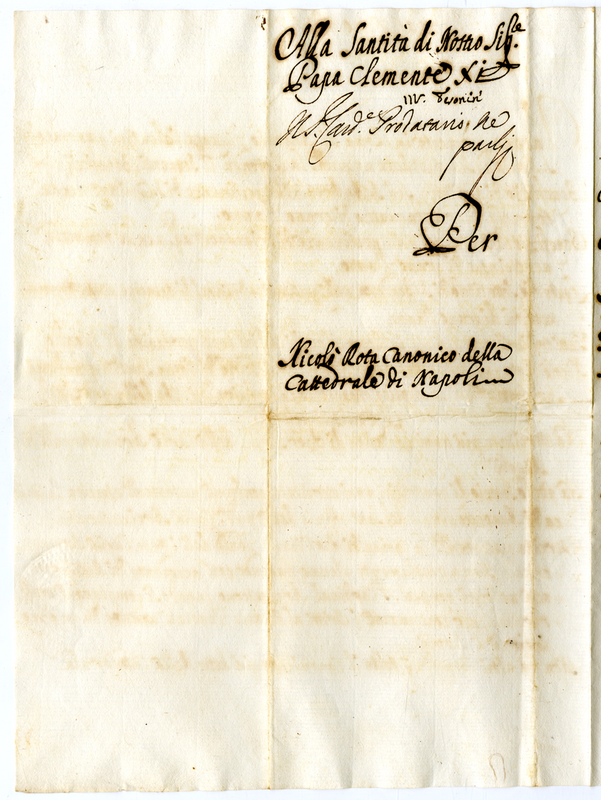 Alla Santità di Nostro Sig.re
Papa Clemente XI
Card.e Prodatario ne
parli
Per
Nicolò Rota Canonico della
Cattedrale di Napoli